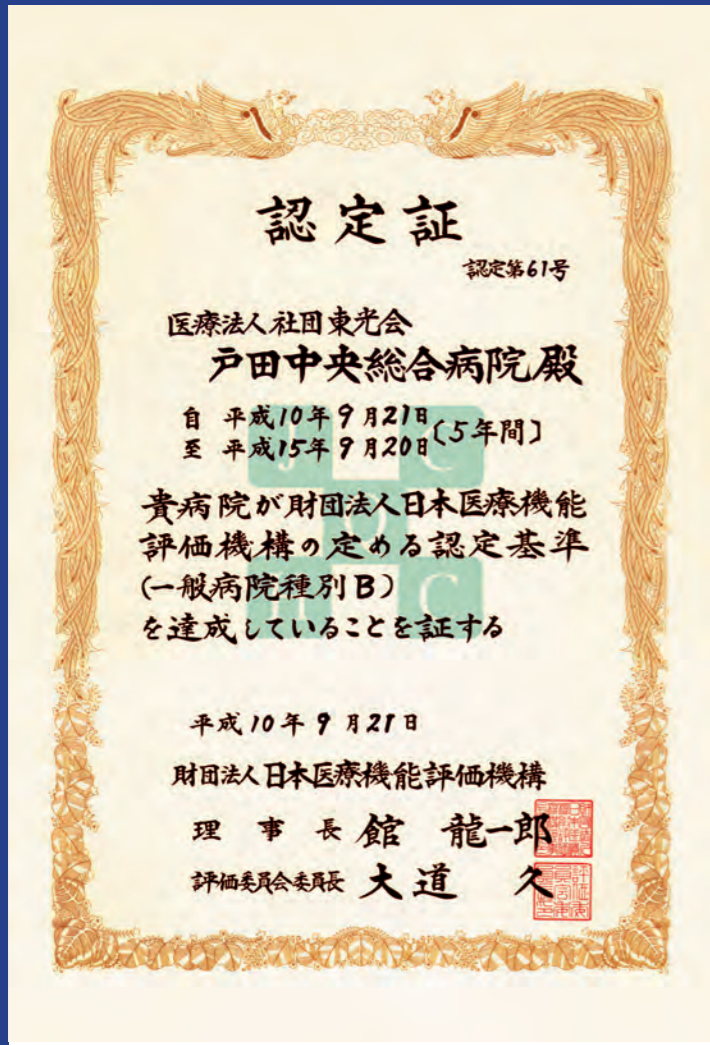 認定証
認定第61号
医療法人社団東光会
戸田中央総合病院殿
自 平成10年9月21日
至 平成15年9月20日
〔5年間〕
貴病院が財団法人日本医療機能
評価機構の定める認定基準
(一般病院種別B)
を達成していることを証する
平成10年9月21日
財団法人日本医療機能評価機構
理事長 館 龍一郎
評価委員会委員長 大道 久